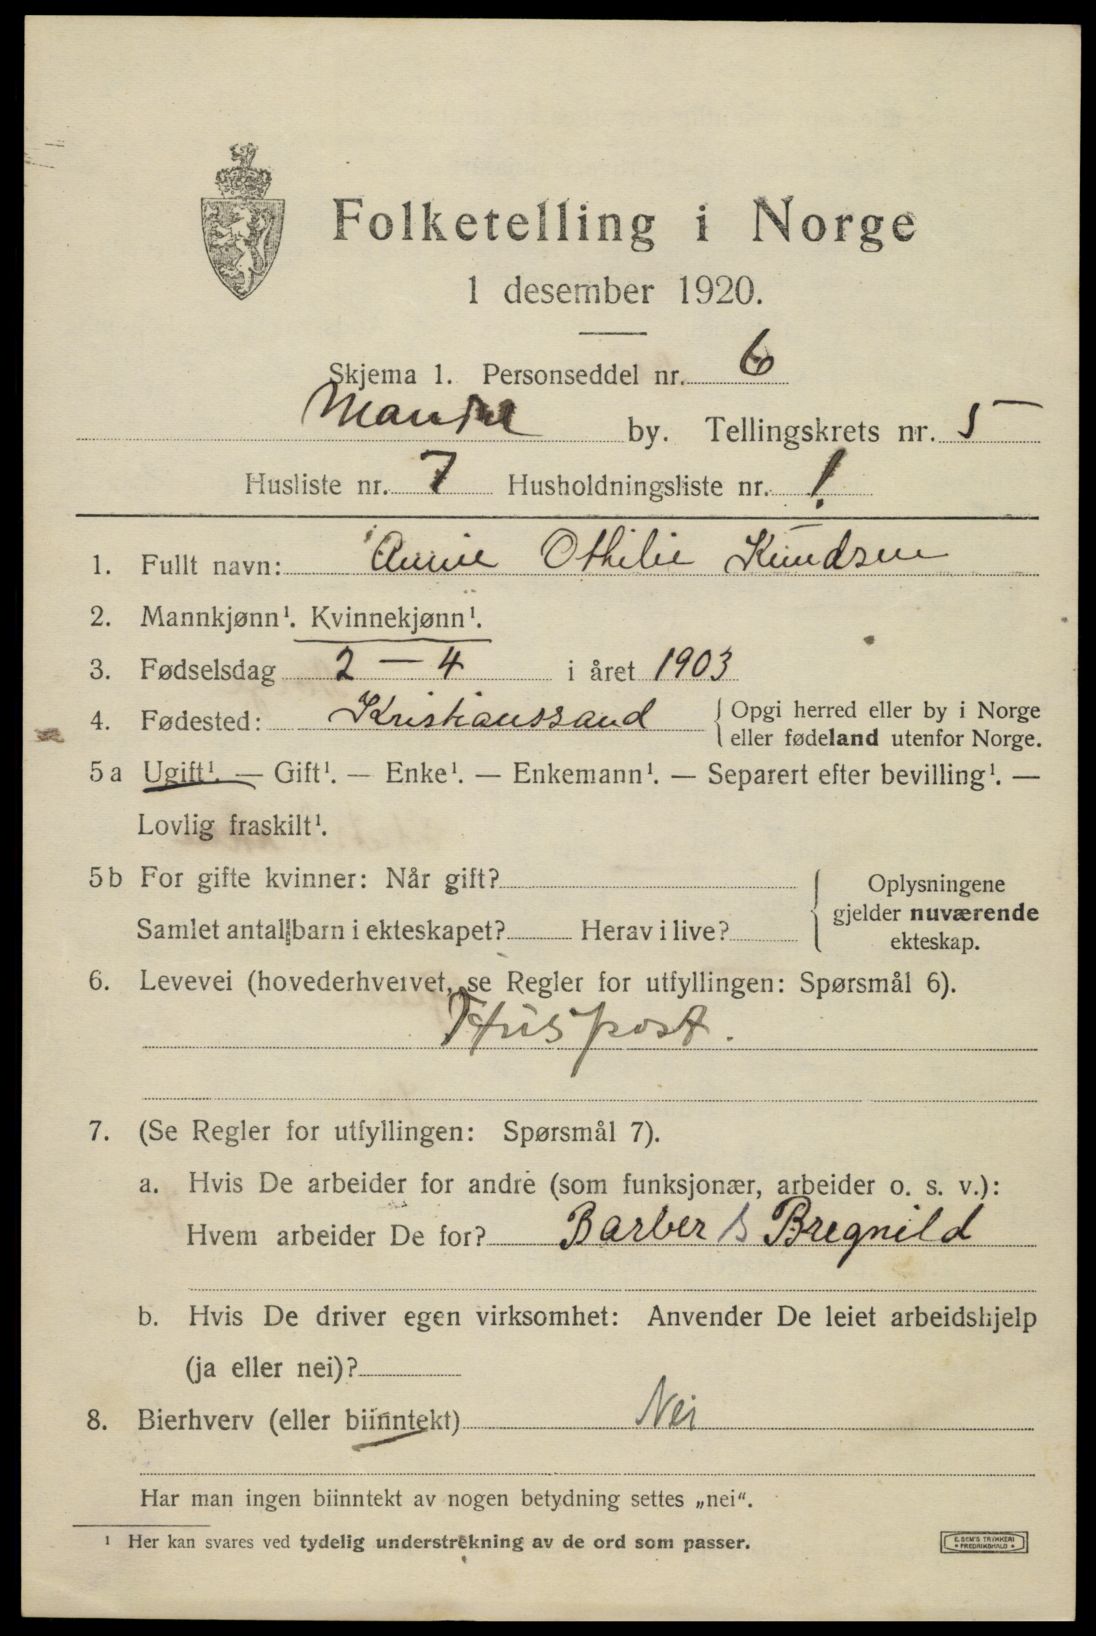 Folketelling i Norge
1 desember 1920.
Skjema 1. Personseddel nr. 6
Mandal by. Tellingskrets nr. 5
Husliste nr. 7 Husholdningsliste nr. 1.
1. Fullt navn: Annie Othilie Knudsen
2. Mannkjønn¹. Kvinnekjønn¹.
3. Fødselsdag 2 — 4 i året 1903
4. Fødested: Kristianssand { Opgi herred eller by i Norge
eller fødeland utenfor Norge.
5a Ugift¹. — Gift¹. — Enke¹. — Enkemann¹. — Separert efter bevilling¹. —
Lovlig fraskilt¹.
5b For gifte kvinner: Når gift?
Samlet antall barn i ekteskapet? Herav i live?
{ Oplysningene
gjelder nuværende
ekteskap.
6. Levevei (hovederhvervet, se Regler for utfyllingen: Spørsmål 6).
Huspost.
7. (Se Regler for utfyllingen: Spørsmål 7).
a. Hvis De arbeider for andre (som funksjonær, arbeider o. s. v.):
Hvem arbeider De for? Barber B Bregnild
b. Hvis De driver egen virksomhet: Anvender De leiet arbeidshjelp
(ja eller nei)?
8. Bierhverv (eller biinntekt) Nei
Har man ingen biinntekt av nogen betydning settes „nei".
¹ Her kan svares ved tydelig understrekning av de ord som passer.
E. SEM'S TRYKKERI
* FREDRIKSHALD *